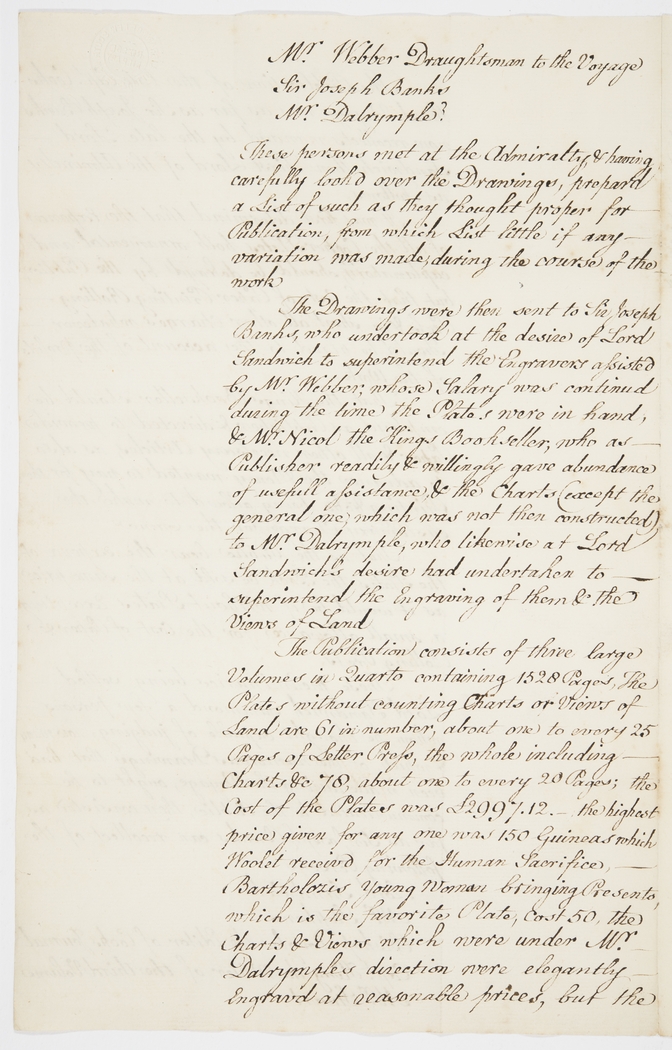 Mr. Webber Draughtsman to the Voyage
Sir Joseph Banks
Mr. Dalrymple.
These persons met at the Admiralty, & having
carefully look'd over the Drawings, prepard
a List of such as they thought proper for
Publication, from which List little if any
variation was made, during the course of the
work
The Drawings were then sent to Sir Joseph
Banks, who undertook at the desire of Lord
Sandwich to superintend the Engravers assisted
by Mr. Webber, whose Salary was continud
during the time the Plates were in hand,
& Mr. Nicol the Kings Bookseller, who as
Publisher readily & willingly gave abundance
of usefull assistance, & the Charts (except the
general one, which was not then constructed)
to Mr. Dalrymple, who likewise at Lord
Sandwich's desire had undertaken to
superintend the Engraving of them & the
Views of Land
The Publication consists of three large
Volumes in Quarto containing 1528 Pages, The
Plates without counting Charts or Views of
Land are 61 in number, about one to every 25
Pages of Letter Press, the whole including
Charts &c 78, about one to every 20 Pages; the
Cost of the Plates was £2997.12.— the highest
price given for any one was 150 Guineas which
Woolet receivd for the Human Sacrifice,
Bartholozis Young Woman bringing Presents,
which is the favorite Plate, Cost 50, the
Charts & Views which were under Mr.
Dalrymples direction were elegantly
Engravd at reasonable prices, but the